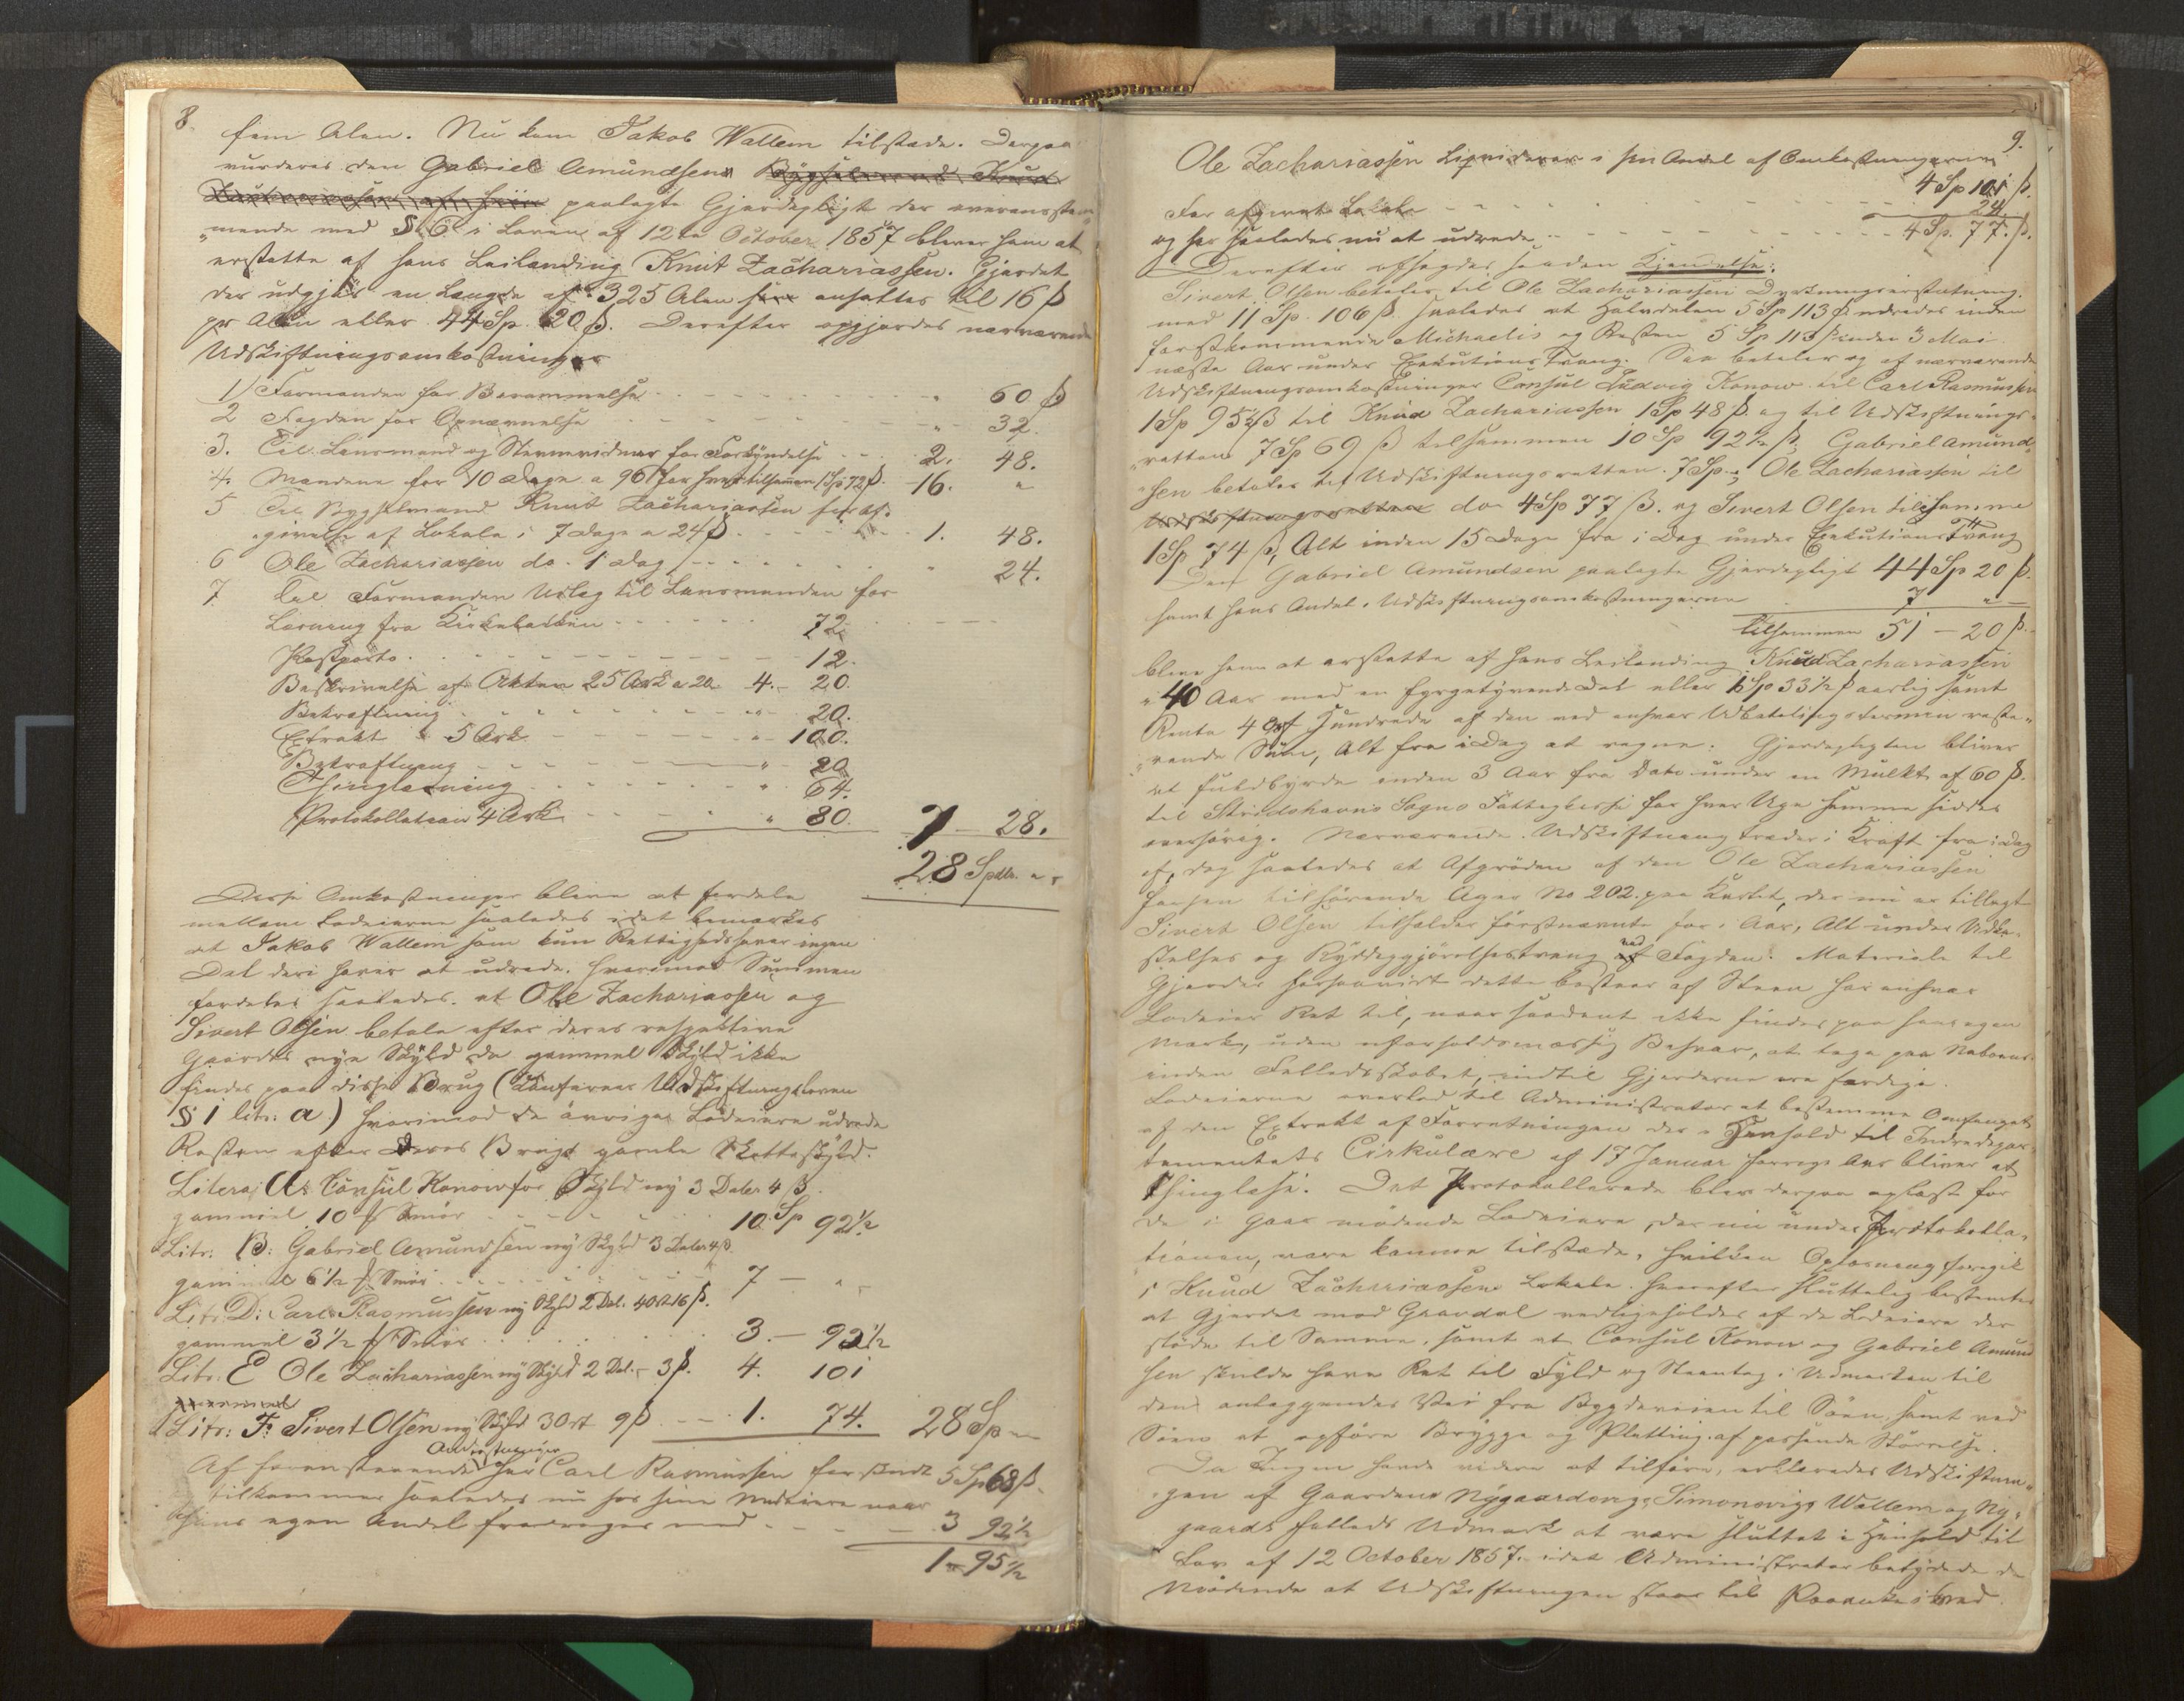 8.
fem Alen. Nu kom Jakob Wallem tilstede. Derpaa
vurderes den Gabriel Amundsen Bygselmand Knud
Zachariassen paalagte Gjerdepligt der overensstem-
mende med § 6 i Loven af 12te October 1857 bliver ham at
erstatte af hans Leilending Knut Zachariassen. Gjerdet
der udgjør en Længde af 325 Alen ansattes til 16 ß
pr Alen eller 44 Sp. 20 ß. Derefter opgjordes nærværende
Udskiftningsomkostninger
1) Formanden for Berammelse 60 ß
2 Fogden for Opnævnelse 32.
3. Til Lensmand og Stevnevidner for Forkyndelse 2. 48.
4. Mændene for 10 Dage a 96 ß for hver tilsammen 1 Sp 72 ß. 16. "
5 Til Bygselmand Knut Zachariassen for af-
givelse af Lokale i 7 Dage a 24 ß 1. 48.
6 Ole Zachariassen do. 1 Dag " 24.
7 Til Formanden Udlæg til Lensmanden for
Læsning fra Kirkebakken 72
Postporto 12.
Beskrivelse af Akten 25 Ark a 20 4. 20.
Bekræftning " 20.
Extrakt 5 Ark " 100.
Bekræftning " 20
Thinglæsning " 64.
Protokollation 4 Ark " 80. 7 - 28.
28 Spdlr. " "
Disse Omkostninger blive at fordele
mellem Lodeierne saaledes idet bemærkes
at Jakob Wallem som kun Rettighedshaver ingen
Del deri haver at udrede. hvorimod Summen
fordeles saaledes. at Ole Zachariassen og
Sivert Olsen betale efter deres respektive
Gaardes nye Skyld da gammel Skyld ikke
findes paa disse Brug (Udskiftningsloven
§ 1 litr. a.) hvorimod de øvrige Lodeiere udrede
Resten efter deres Brugs gamle Matteskyld.
Litera A: Consul Konow for Skyld ny 3 Daler 4 ß.
gammel 10 Smør 10 Sp 92½
Litr: B: Gabriel Amundsen ny Skyld 3 Daler 4 ß.
gammel 6½ Smør 7 - " -
Litr. D: Carl Rasmussen ny Skyld 2 Dal. 4 Ort 16 ß.
gammel 3½ Smør 3. - 92½
Litr: E Ole Zachariassen ny Skyld 2 Dal. - 3 ß. 4. 101
Litr: F: Sivert Olsen ny Skyld 3 Ort 9 ß 1. 74. 28 Sp
Af foranstaaende har Carl Rasmussen forskudt 5 Sp 68 ß.
tilkommer saaledes nu hos sine Medeiere naar
hans egen Andel fradrages med 3 92½
1 - 95½
9.
Ole Zachariassen Liqviderer i sin Andel af Omkostningerne
4 Sp 101 ß.
For afgivet Lokale 24
og har saaledes nu at udrede 4 Sp. 77. ß.
Derefter afsagdes saadan Kjendelse:
Sivert Olsen betaler til Ole Zachariassen Dyrkningserstatning.
med 11 Sp. 106 ß. saaledes at Halvdelen 5 Sp 113 ß udredes inden
førstkommende Michaelis og Resten 5 Sp 113 ß inden 3 Mai
næste Aar under Exekutions Tvang. Saa betaler og af nærværende
Udskiftningsomkostninger Consul Ludvig Konow til Carl Rasmussen
1 Sp 95½ ß til Knud Zachariassen 1 Sp 48 ß og til Udskiftnings-
retten 7 Sp 69 ß tilsammen 10 Sp 92½ ß; Gabriel Amund-
sen betaler til Udskiftningsretten. 7 Sp.; Ole Zachariassen til
Udskiftningsretten do 4 Sp 77 ß. og Sivert Olsen til samme
1 Sp 74 ß, Alt inden 15 Dage fra i Dag under Exekutions Tvang
Den Gabriel Amundsen paalagte Gjerdepligt 44 Sp 20 ß.
samt hans Andel i Udskiftningsomkostningerne 7 " -
tilsammen 51 - 20 ß.
blive ham at erstatte af hans Leilending Knud Zachariassen
i 40 Aar med en fyrgetyvende Del eller 1 Sp 33½ ß aarlig samt
Rente 4 Hundrede af den ved enhver Udbetalingstermin reste-
rende Sum, Alt fra i Dag at regne. Gjerdepligten bliver
at fuldbyrde inden 3 Aar fra Dato under en Mulkt af 60 ß.
til Stridshavns Sogns Fattigkasse for hver Uge samme sidder
overhørig. Nærværende Udskiftning træder i Kraft fra i Dag
af, dog saaledes at Afgrøden af den Ole Zachariassen
tilhørende Ager No 202. paa Kartet, der nu er tillagt
Sivert Olsen tilfalder førstnævnte for i Aar, Alt under Udka-
stelses og Ryddiggjørelsestvang ved Fogden. Materiale til
Gjerder forsaavidt dette bestaar af Steen har enhver
Lodeier Ret til, naar saadant ikke findes paa hans egen
Mark, uden uforholdsmæssig Besvær, at tage paa Naboens
inden Fælledsskabet, indtil Gjerderne ere færdige.
Lodeierne overlod til Administrator at bestemme Omfanget
af den Extrakt af Forretningen der i Henhold til Indredepar-
tementets Cirkulære af 17 Januar forrige Aar bliver at
thinglæse. Det Protokollerede blev derpaa oplæst for
de i Gaar mødende Lodeiere, der nu under Protokolla-
tionen, vare komne tilstede, hvilken Oplæsning foregik
i Knud Zachariassens Lokale. hvorefter sluttelig bestemtes
at Gjerdet mod Graudal vedligeholdes af de Lodeiere der
støde til Samme, samt at Consul Konow og Gabriel Amund
sen skulde have Ret til Fyld og Steentag i Udmarken til
den anlæggendes Vei fra Bygdeveien til Søen, samt ved
Søen at opføre Brygge og Platting af passende Størrelse.
Da Ingen havde videre at tilføre, erklæredes Udskiftnin-
gen af Gaarden Nygaardsvig, Simonsvig, Wallem og Ny-
gaards fælleds Udmark at være sluttet i Henhold til
Lov af 12 October 1857. idet Administrator betydede de
Mødende at Udskiftningen staar til Paaanke i